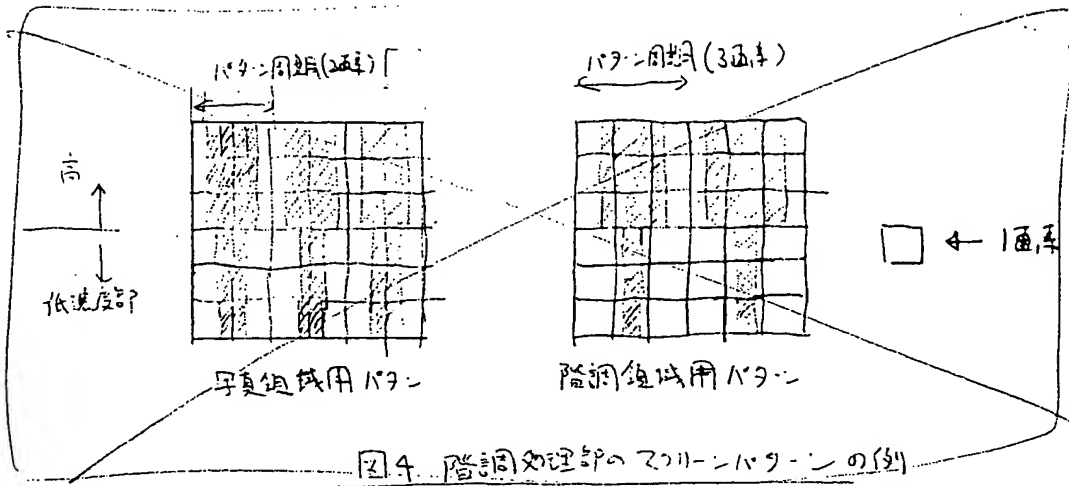 パターン周期(2画素)
パターン周期(3画素)
高
低濃度部
← 1画素
写真領域用パタン
階調領域用パターン
図4 階調処理部のスクリーンパターンの例